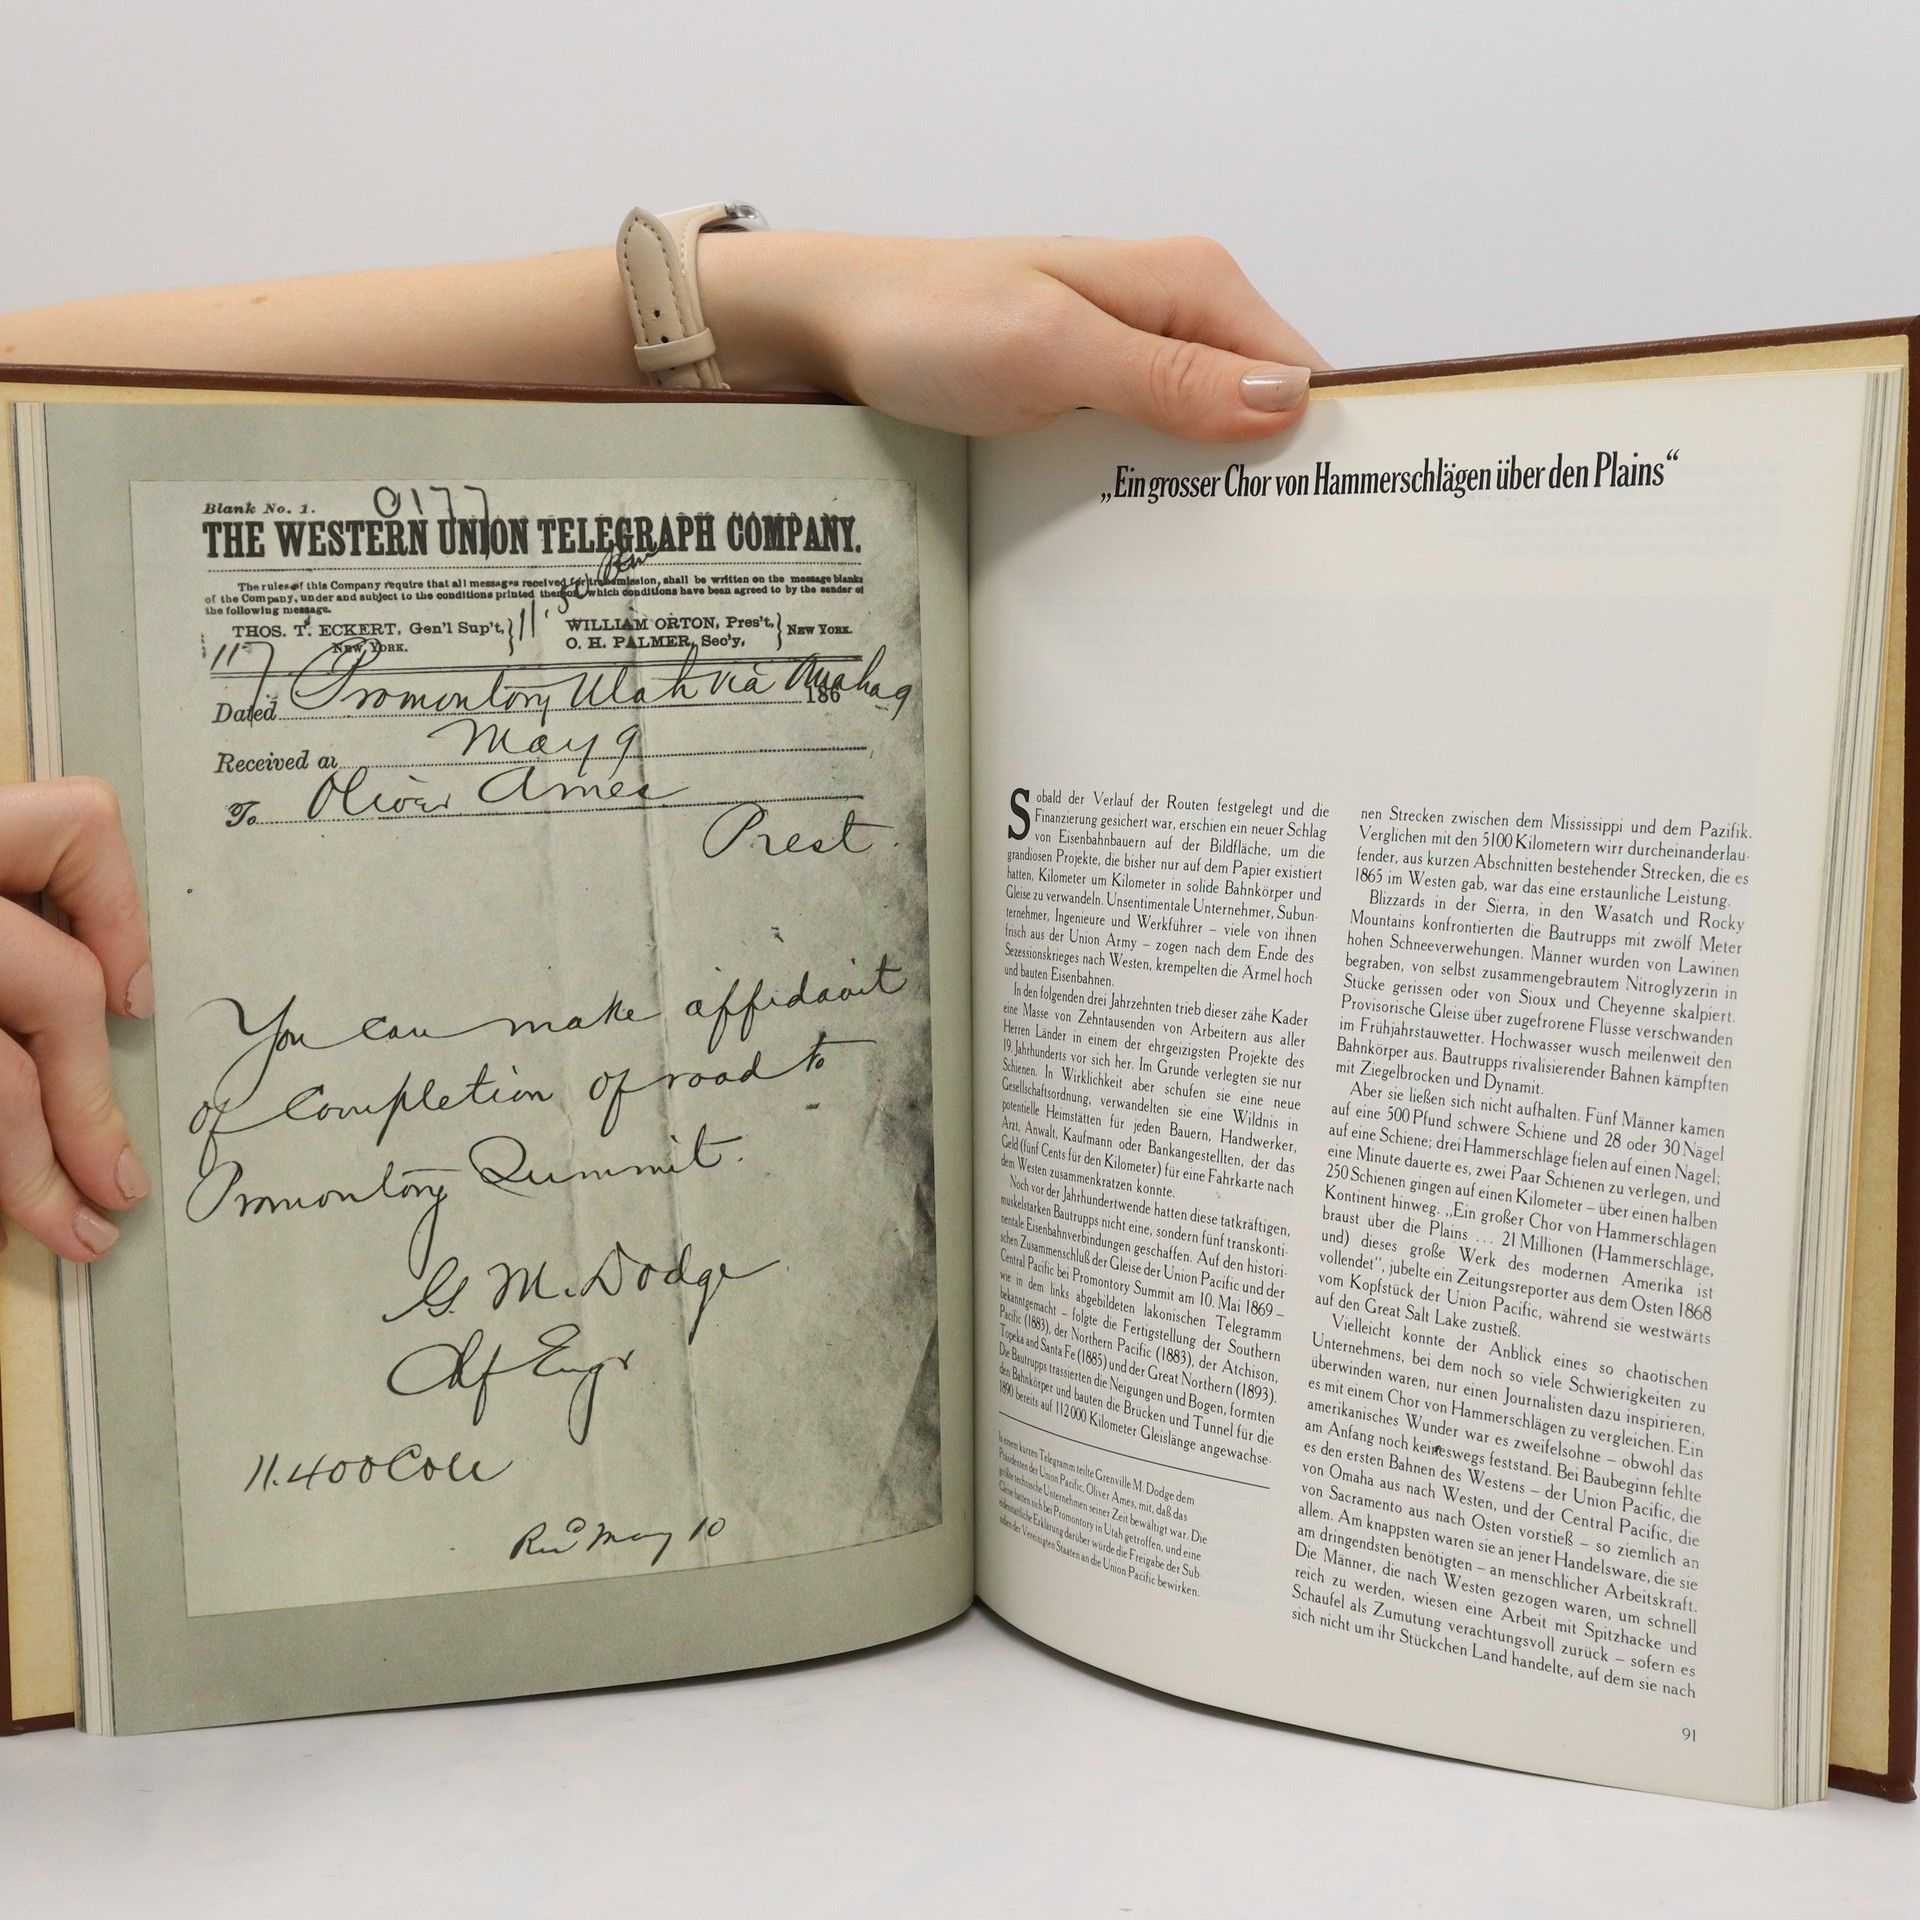 0177
Blank No. 1.
THE WESTERN UNION TELEGRAPH COMPANY.
The rules of this Company require that all messages received for transmission, shall be written on the message blanks
of the Company, under and subject to the conditions printed thereon, which conditions have been agreed to by the sender of
the following message.
THOS. T. ECKERT, Gen'l Sup't, NEW YORK.
WILLIAM ORTON, Pres't,
O. H. PALMER, Sec'y, NEW YORK.
117
Dated Promontory Utah via Omaha 9 186
Received at May 9
To Oliver Ames
Prest.
You can make affidavit
of completion of road to
Promontory Summit.
G. M. Dodge
Chf Engr
11.400 Coll
Recd May 10
„Ein grosser Chor von Hammerschlägen über den Plains“
Sobald der Verlauf der Routen festgelegt und die
Finanzierung gesichert war, erschien ein neuer Schlag
von Eisenbahnbauern auf der Bildfläche, um die
grandiosen Projekte, die bisher nur auf dem Papier existiert
hatten, Kilometer um Kilometer in solide Bahnkörper und
Gleise zu verwandeln. Unsentimentale Unternehmer, Subun-
ternehmer, Ingenieure und Werkführer – viele von ihnen
frisch aus der Union Army – zogen nach dem Ende des
Sezessionskrieges nach Westen, krempelten die Ärmel hoch
und bauten Eisenbahnen.
In den folgenden drei Jahrzehnten trieb dieser zähe Kader
eine Masse von Zehntausenden von Arbeitern aus aller
Herren Länder in einem der ehrgeizigsten Projekte des
19. Jahrhunderts vor sich her. Im Grunde verlegten sie nur
Schienen. In Wirklichkeit aber schufen sie eine neue
Gesellschaftsordnung, verwandelten sie eine Wildnis in
potentielle Heimstätten für jeden Bauern, Handwerker,
Arzt, Anwalt, Kaufmann oder Bankangestellten, der das
Geld (fünf Cents für den Kilometer) für eine Fahrkarte nach
dem Westen zusammenkratzen konnte.
Noch vor der Jahrhundertwende hatten diese tatkräftigen,
muskelstarken Bautrupps nicht eine, sondern fünf transkonti-
nentale Eisenbahnverbindungen geschaffen. Auf den histori-
schen Zusammenschluß der Gleise der Union Pacific und der
Central Pacific bei Promontory Summit am 10. Mai 1869 –
wie in dem links abgebildeten lakonischen Telegramm
bekanntgemacht – folgte die Fertigstellung der Southern
Pacific (1883), der Northern Pacific (1883), der Atchison,
Topeka and Santa Fe (1885) und der Great Northern (1893).
Die Bautrupps trassierten die Neigungen und Bogen, formten
den Bahnkörper und bauten die Brücken und Tunnel für die
1890 bereits auf 112000 Kilometer Gleislänge angewachse-
In einem kurzen Telegramm teilte Grenville M. Dodge dem
Präsidenten der Union Pacific, Oliver Ames, mit, daß das
größte technische Unternehmen seiner Zeit bewältigt war. Die
Gleise hatten sich bei Promontory in Utah getroffen, und eine
eidesstattliche Erklärung darüber würde die Freigabe der Sub-
sidien der Vereinigten Staaten an die Union Pacific bewirken.
nen Strecken zwischen dem Mississippi und dem Pazifik.
Verglichen mit den 5100 Kilometern wirr durcheinanderlau-
fender, aus kurzen Abschnitten bestehender Strecken, die es
1865 im Westen gab, war das eine erstaunliche Leistung.
Blizzards in der Sierra, in den Wasatch und Rocky
Mountains konfrontierten die Bautrupps mit zwölf Meter
hohen Schneeverwehungen. Männer wurden von Lawinen
begraben, von selbst zusammengebrautem Nitroglyzerin in
Stücke gerissen oder von Sioux und Cheyenne skalpiert.
Provisorische Gleise über zugefrorene Flüsse verschwanden
im Frühjahrstauwetter. Hochwasser wusch meilenweit den
Bahnkörper aus. Bautrupps rivalisierender Bahnen kämpften
mit Ziegelbrocken und Dynamit.
Aber sie ließen sich nicht aufhalten. Fünf Männer kamen
auf eine 500 Pfund schwere Schiene und 28 oder 30 Nägel
auf eine Schiene; drei Hammerschläge fielen auf einen Nagel;
eine Minute dauerte es, zwei Paar Schienen zu verlegen, und
250 Schienen gingen auf einen Kilometer – über einen halben
Kontinent hinweg. „Ein großer Chor von Hammerschlägen
braust über die Plains ... 21 Millionen (Hammerschläge,
und) dieses große Werk des modernen Amerika ist
vollendet“, jubelte ein Zeitungsreporter aus dem Osten 1868
vom Kopfstück der Union Pacific, während sie westwärts
auf den Great Salt Lake zustieß.
Vielleicht konnte der Anblick eines so chaotischen
Unternehmens, bei dem noch so viele Schwierigkeiten zu
überwinden waren, nur einen Journalisten dazu inspirieren,
es mit einem Chor von Hammerschlägen zu vergleichen. Ein
amerikanisches Wunder war es zweifelsohne – obwohl das
am Anfang noch keineswegs feststand. Bei Baubeginn fehlte
es den ersten Bahnen des Westens – der Union Pacific, die
von Omaha aus nach Westen, und der Central Pacific, die
von Sacramento aus nach Osten vorstieß – so ziemlich an
allem. Am knappsten waren sie an jener Handelsware, die sie
am dringendsten benötigten – an menschlicher Arbeitskraft.
Die Männer, die nach Westen gezogen waren, um schnell
reich zu werden, wiesen eine Arbeit mit Spitzhacke und
Schaufel als Zumutung verachtungsvoll zurück – sofern es
sich nicht um ihr Stückchen Land handelte, auf dem sie nach
91